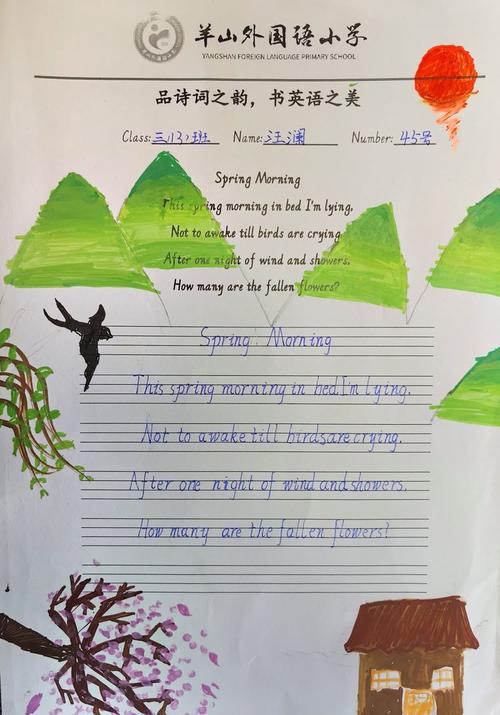 羊山外国语小学
YANGSHAN FOREIGN LANGUAGE PRIMARY SCHOOL
品诗词之韵，书英语之美
Class: 三(13)班 Name: 汪澜 Number: 45号
Spring Morning
This spring morning in bed I'm lying,
Not to awake till birds are crying.
After one night of wind and showers,
How many are the fallen flowers?
Spring Morning
This spring morning in bed I'm lying,
Not to awake till birds are crying.
After one night of wind and showers,
How many are the fallen flowers?